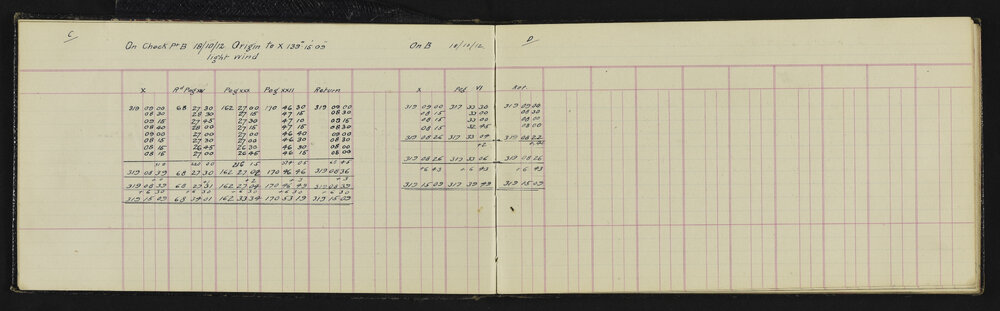 C
On Check Pt B 18/10/12 Origin to X 139° 15' 09"
light wind
X Peg XX Peg XXII Return
319 09 00 68 27 30 162 27 00 170 46 30 319 09 00
08 30 28 30 27 15 47 15 08 30
09 15 27 45 27 30 47 10 09 15
08 40 28 00 27 15 47 15 08 30
09 00 27 00 27 00 46 40 09 00
08 15 27 30 27 00 46 30 08 30
08 15 26 45 26 30 46 30 08 00
08 15 27 00 26 45 46 15 08 00
319 08 39 68 27 30 162 27 02 170 46 46 319 08 36
319 08 39 68 27 31 162 27 04 170 46 49 319 08 39
+6 30 +6 30 +6 30 +6 30 +6 30
319 15 09 68 34 01 162 33 34 170 53 19 319 15 09
D
On B 18/10/12
X Peg VI Ret.
319 09 00 317 33 30 319 09 00
08 15 33 00 08 30
08 15 33 00 08 00
08 15 32 45 08 00
319 08 26 317 33 04 319 08 22
+2
319 08 26 317 33 06 319 08 26
+6 43 +6 43 +6 43
319 15 09 317 39 49 319 15 09